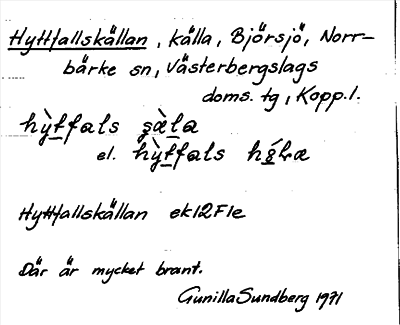 Hyttfallskällan, källa, Björsjö, Norr-
bärke sn, Västerbergslags
doms. tg, Kopp.l.
hỳtfals
el. hỳtfals
Hyttfallskällan ek12F1e
Där är mycket brant.
Gunilla Sundberg 1971